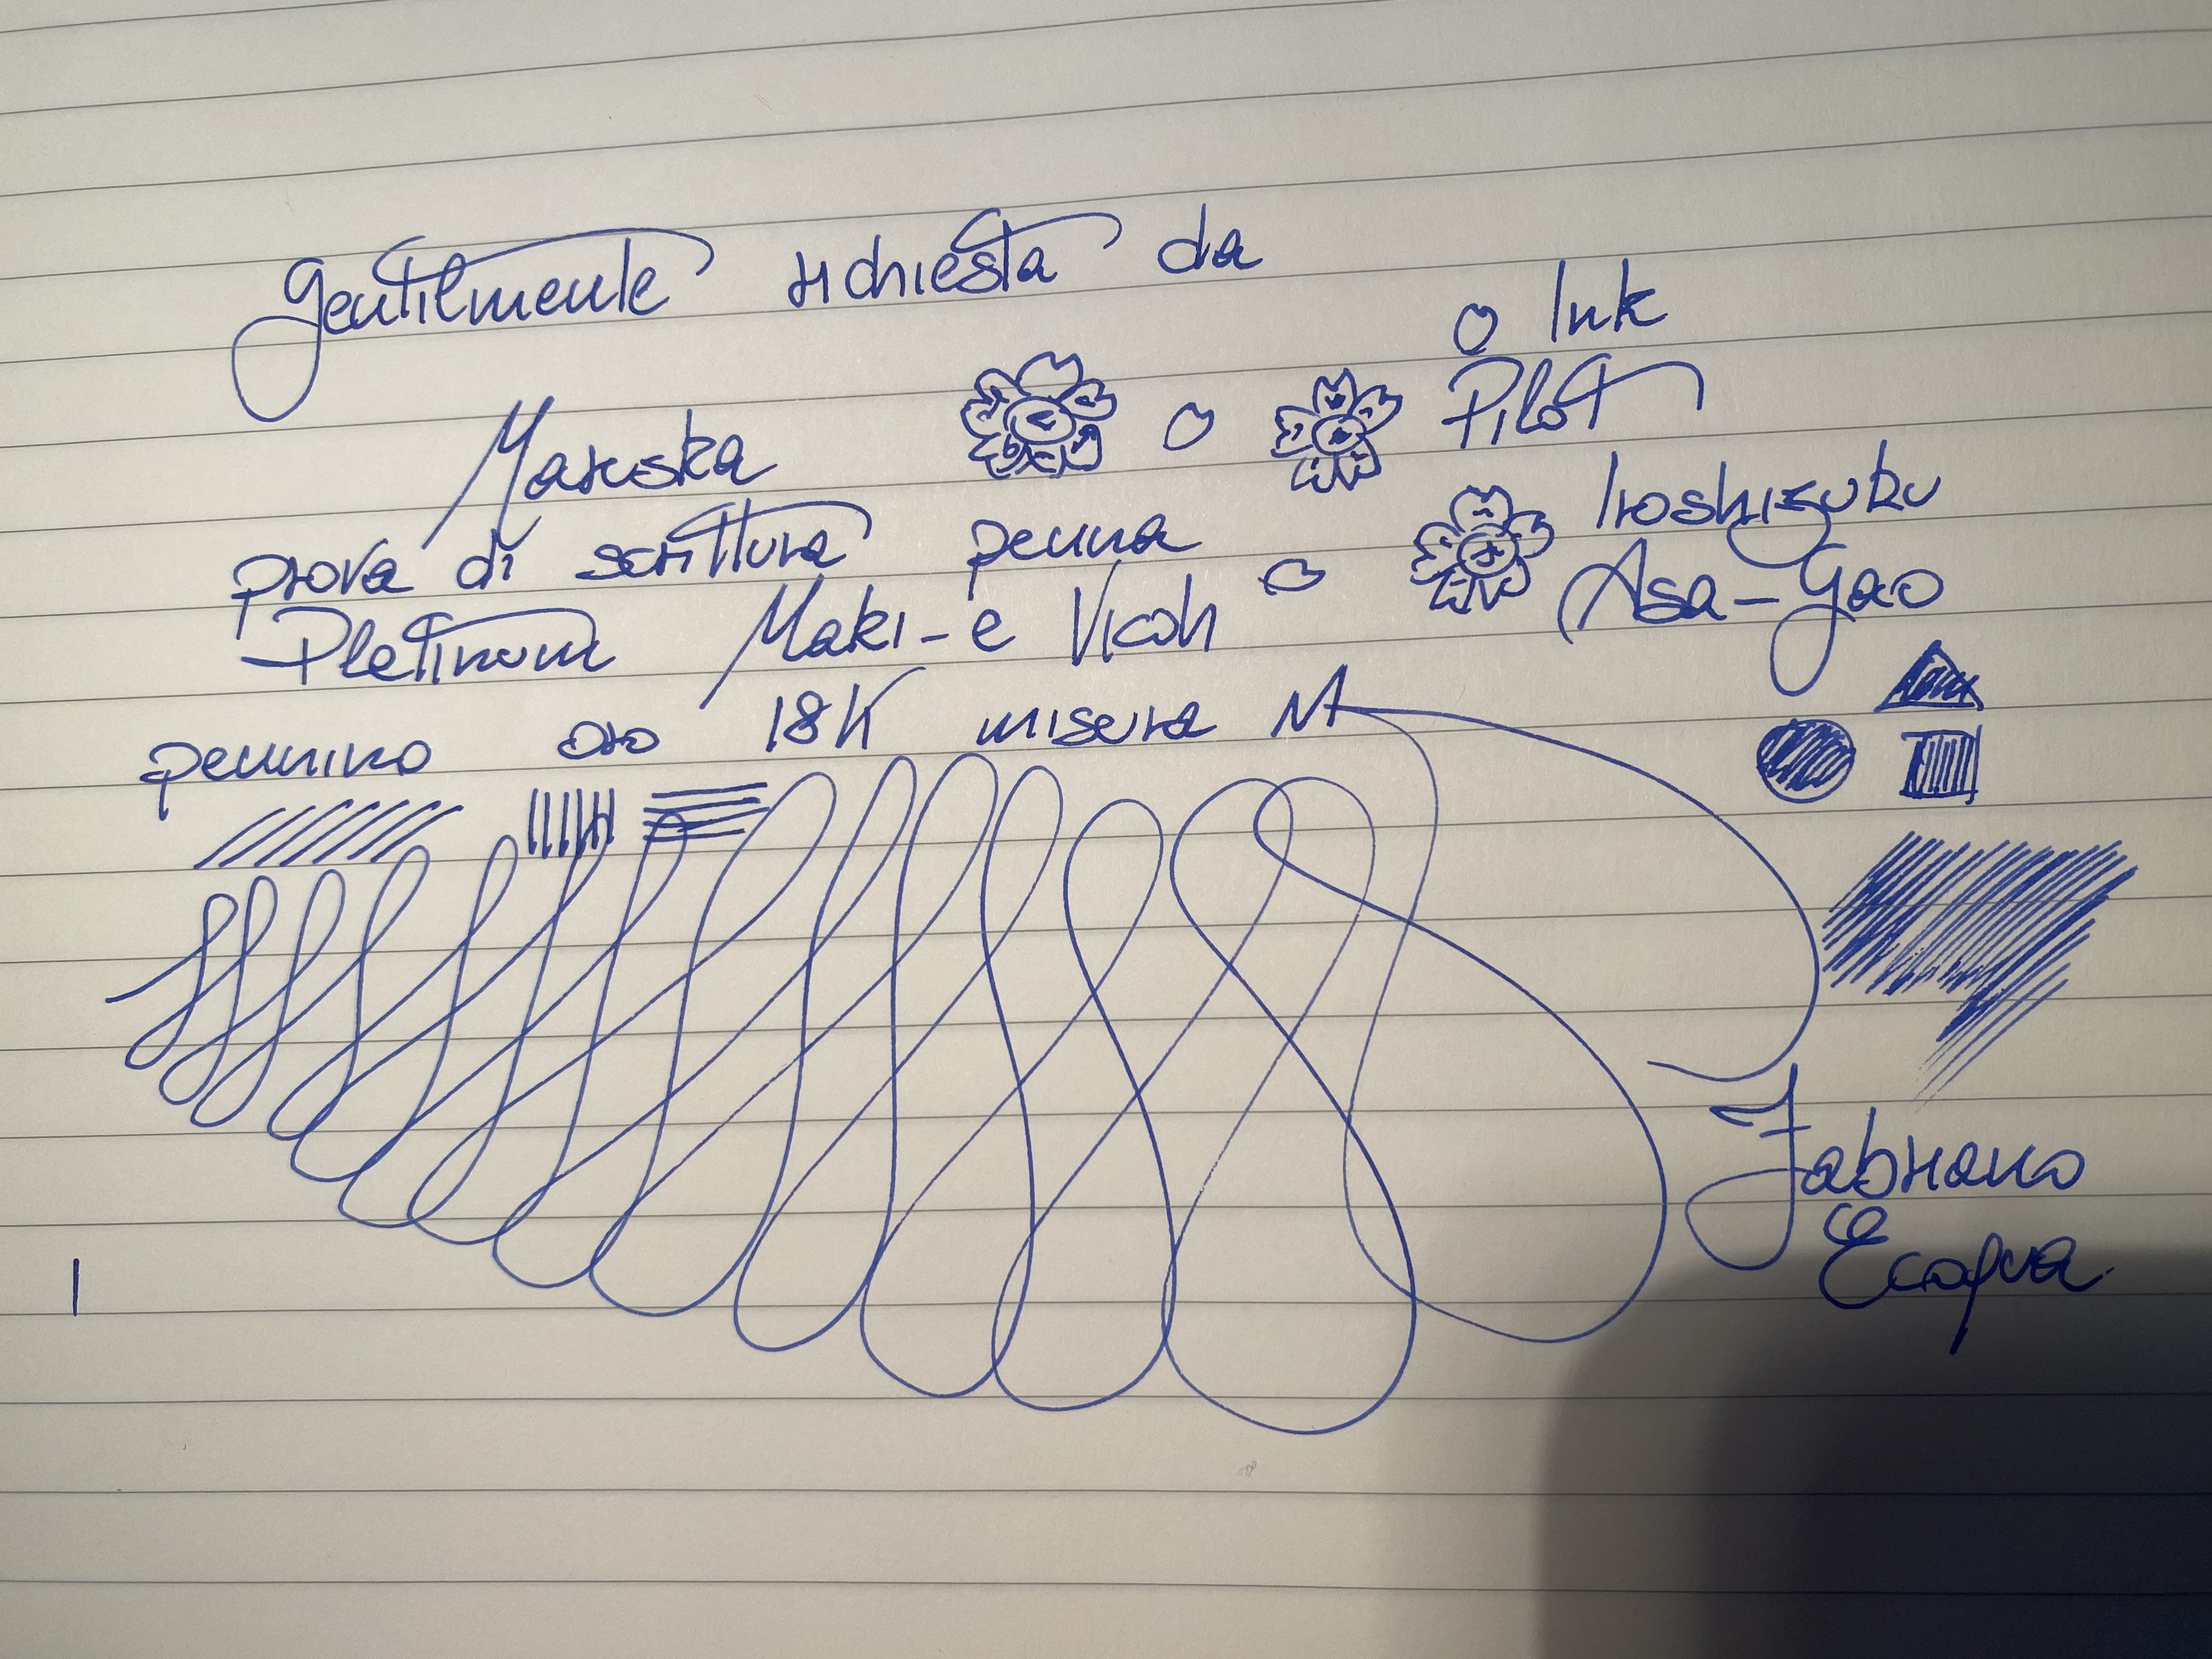 gentilmente richiesta da
Mariska
prova di scrittura penna
Platinum Maki-e Vicoh
pennino oro 18K misura M
Ink
Pilot
Iroshizuku
Asa-Gao
Fabriano
Ecoqua